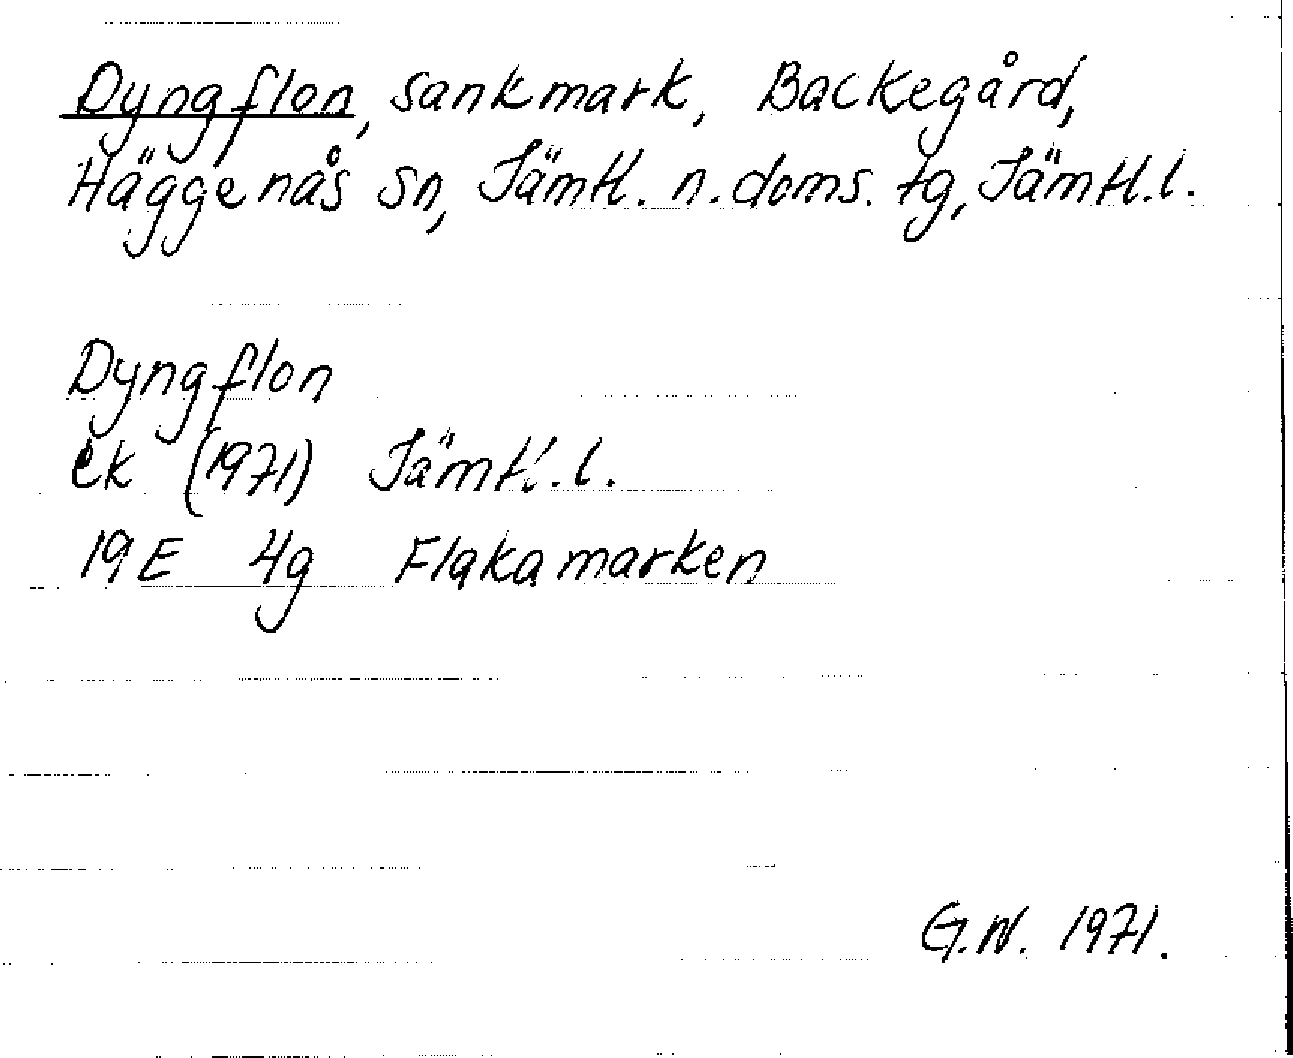 Dyngflon, sankmark, Backegård,
Häggenås sn, Jämtl. n. doms. tg, Jämtl.l.
Dyngflon
ek (1971) Jämtl.l.
19E 4g Flakamarken
G.W. 1971.